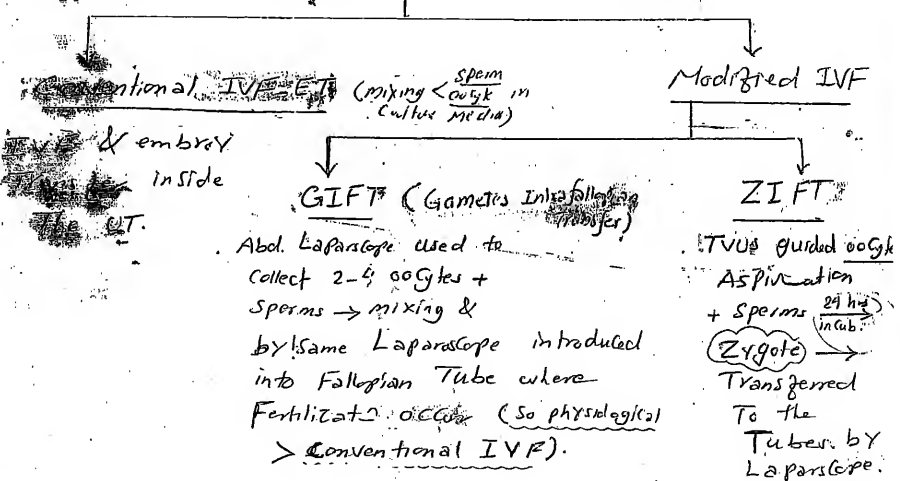 Conventional IVF-ET (mixing < sperm
oocyte in
Cultur Media)
TVUS & embroy
inside
The UT.
Modified IVF
GIFT (Gametes Intrafallopian
Transfer)
. Abd. Laparscope used to
Collect 2-4 oocytes +
Sperms → mixing &
by Same Laparoscope introduced
into Fallopian Tube where
Fertilizatn occur (So physiological
> Conventional IVF).
ZIFT
. TVUS guided oocyte
Aspiration
+ Sperms 24 hrs
incub.
Zygote →
Transferred
To the
Tubes by
Laparscope.